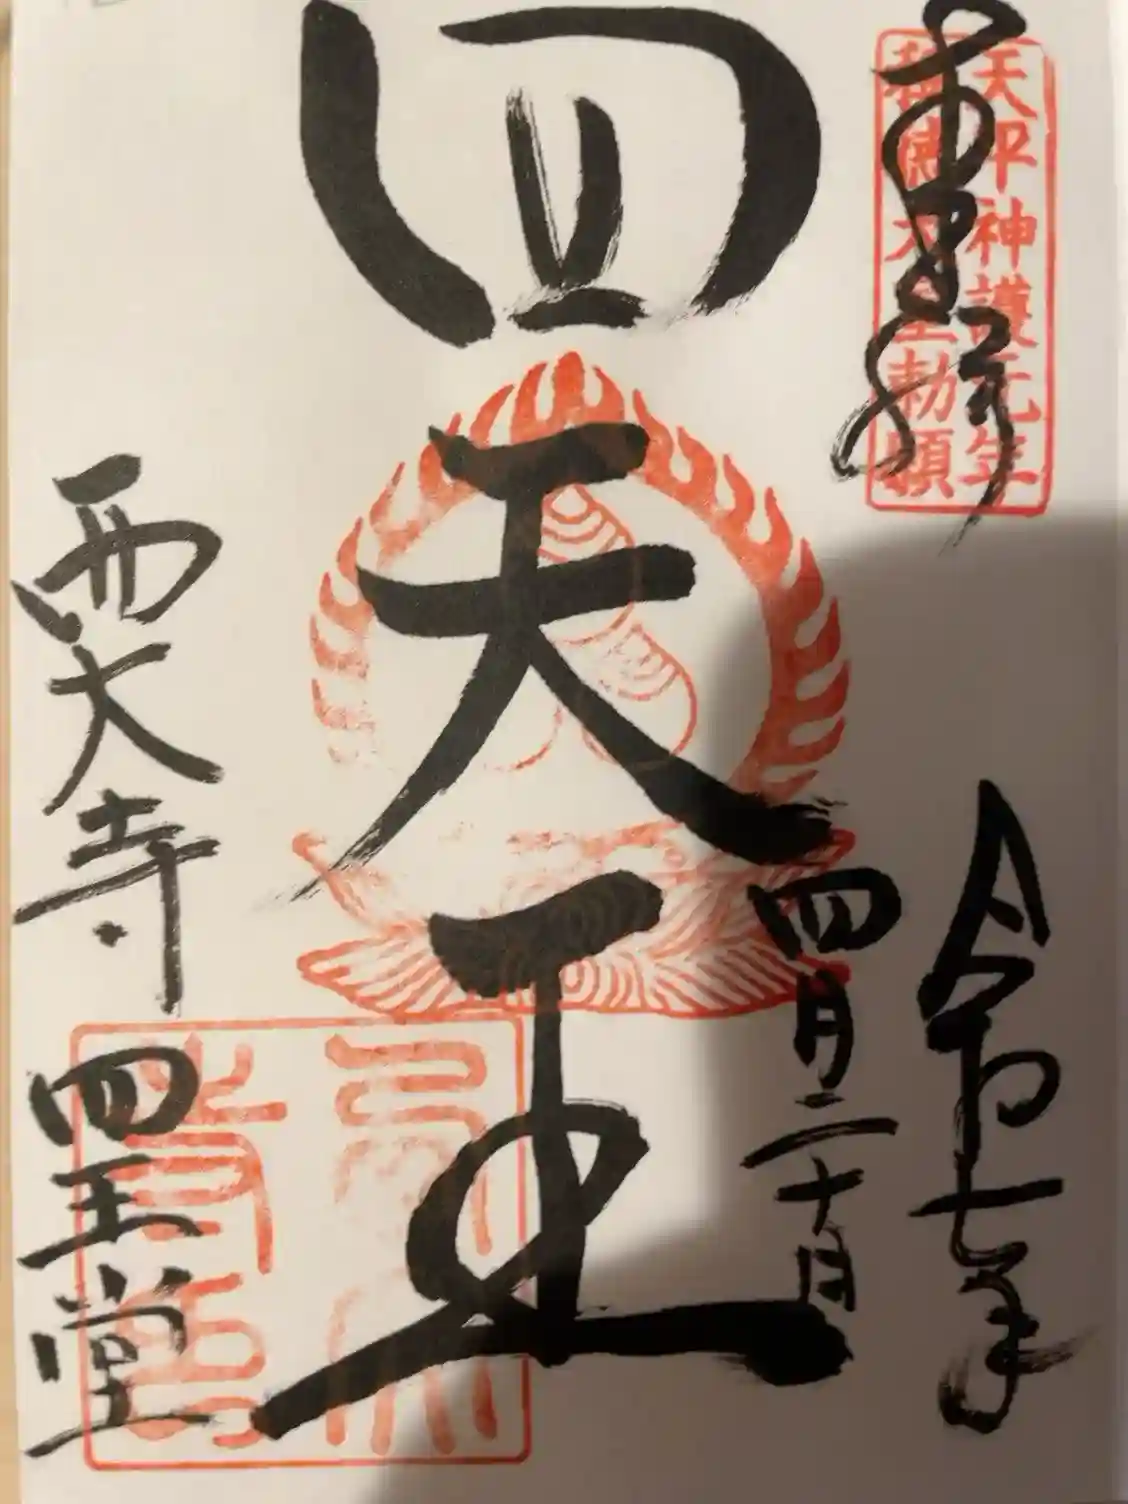 奉拝
天平神護元年
称徳天皇勅願
令和七年
四月二十日
四天王
西大寺
四王堂